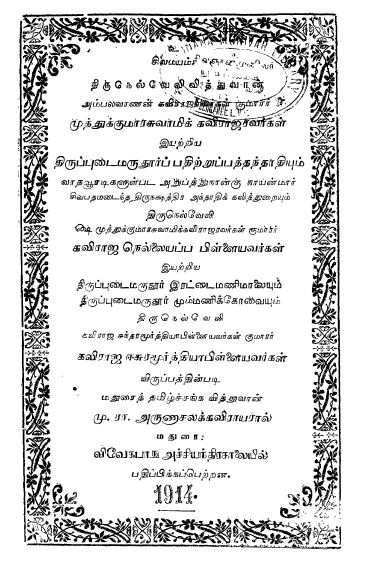 சிவமயம்
திருநெல்வேலிவித்துவான்
அம்பலவாணன் கவிராஜரவர்கள் குமாரர்
முத்துக்குமாரசுவாமிக் கவிராஜரவர்கள்
இயற்றிய
திருப்புடைமருதூர்ப்பதிற்றுப்பத்தந்தாதியும்
வாதவூரடிகளுள்பட அறுபத்துநான்கு நாயன்மார்
சிவபதமடைந்த திருநக்ஷத்திர அந்தாதிக் கவித்துறையும்
திருநெல்வேலி
௸ முத்துக்குமாரசுவாமிக்கவிராஜரவர்கள் குமாரர்
கவிராஜ நெல்லையப்ப பிள்ளையவர்கள்
இயற்றிய
திருப்புடைமருதூர் இரட்டைமணிமாலையும்
திருப்புடைமருதூர் மும்மணிக்கோவையும்
திருநெல்வேலி
கவிராஜ ஈசுரமூர்த்தியாபிள்ளையவர்கள் குமாரர்
கவிராஜ ஈசுரமூர்த்தியாபிள்ளையவர்கள்
விருப்பத்தின்படி
மதுரைத் தமிழ்ச்சங்க வித்துவான்
மு. ரா. அருணாசலக்கவிராயரால்
மதுரை:
விவேகபாநு அச்சியந்திரசாலையில்
பதிப்பிக்கப்பெற்றன.
1914.